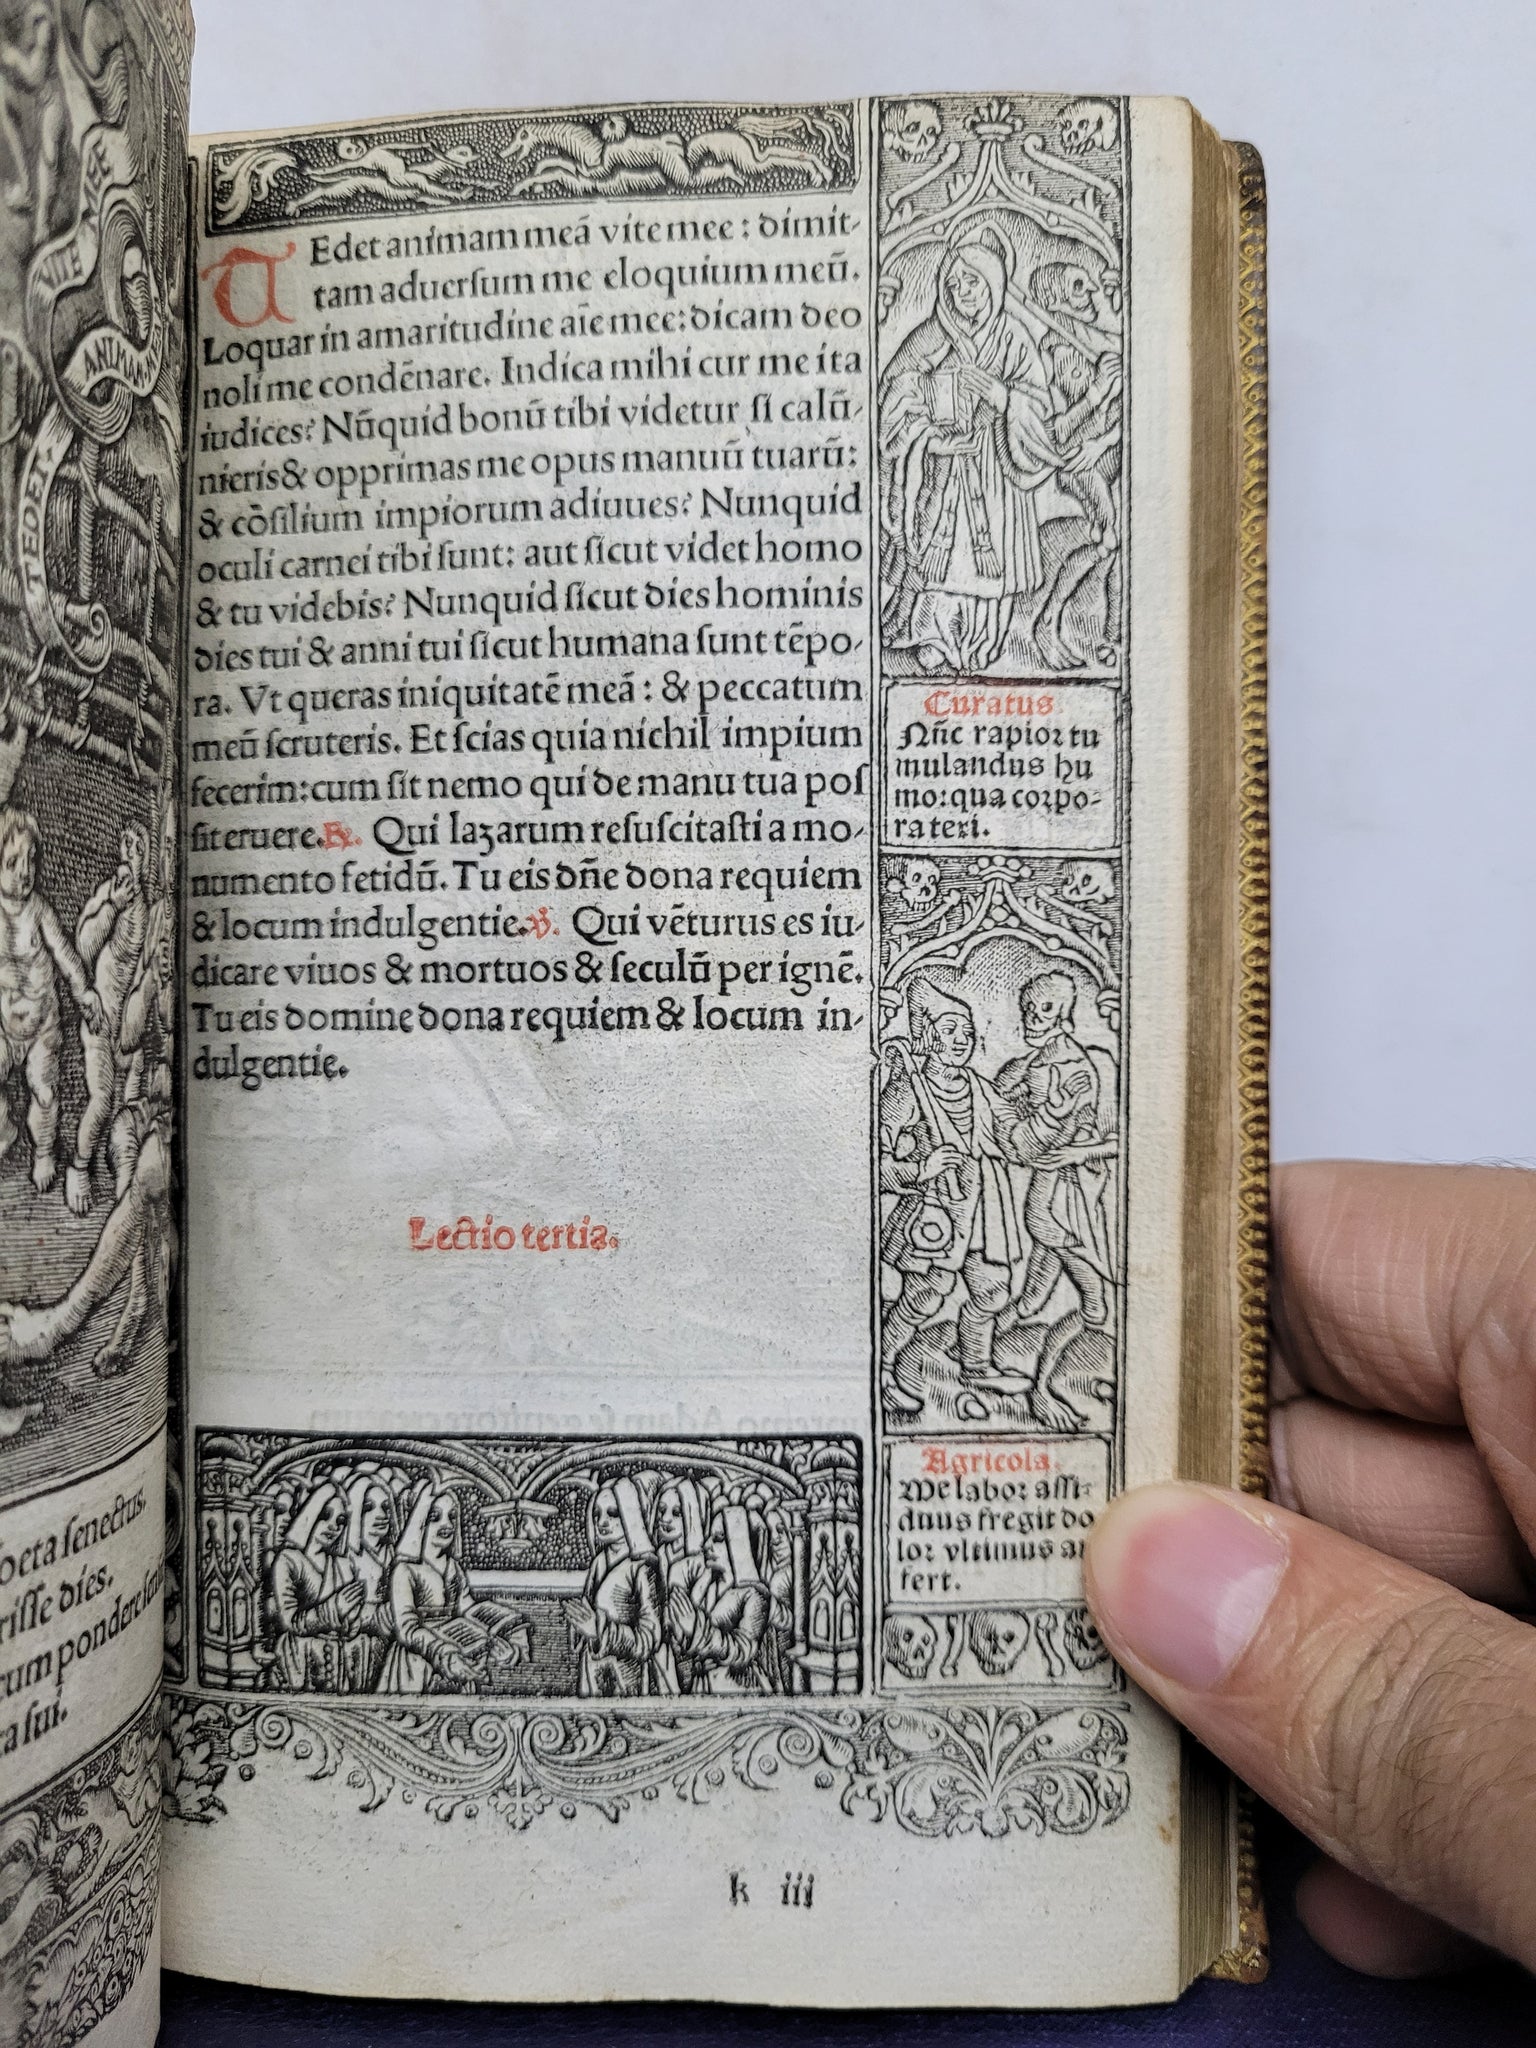 VITE MEE
ANIMAM MEĀ
TEDET
octa senectus,
risse dies.
cum pondere
ta sui.
TEdet animam meā vite mee : dimit-
tam aduersum me eloquium meū.
Loquar in amaritudine aīe mee: dicam deo
noli me condēnare. Indica mihi cur me ita
iudices? Nūquid bonū tibi videtur si calū-
nieris & opprimas me opus manuū tuarū:
& cōsilium impiorum adiuues? Nunquid
oculi carnei tibi sunt: aut sicut videt homo
& tu videbis? Nunquid sicut dies hominis
dies tui & anni tui sicut humana sunt tēpo-
ra. Vt queras iniquitatē meā : & peccatum
meū scruteris. Et scias quia nichil impium
fecerim: cum sit nemo qui de manu tua pos
sit eruere. ℟. Qui lazarum resuscitasti a mo-
numento fetidū. Tu eis dn̄e dona requiem
& locum indulgentie. ℣. Qui vēturus es iu-
dicare viuos & mortuos & seculū per ignē.
Tu eis domine dona requiem & locum in-
dulgentie.
Lectio tertia.
Curatus.
Nn̄c rapior tu
mulandus hu
mo: qua corpo-
ra texi.
Agricola.
Me labor assi-
duus fregit do
lor vltimus au
fert.
k iii